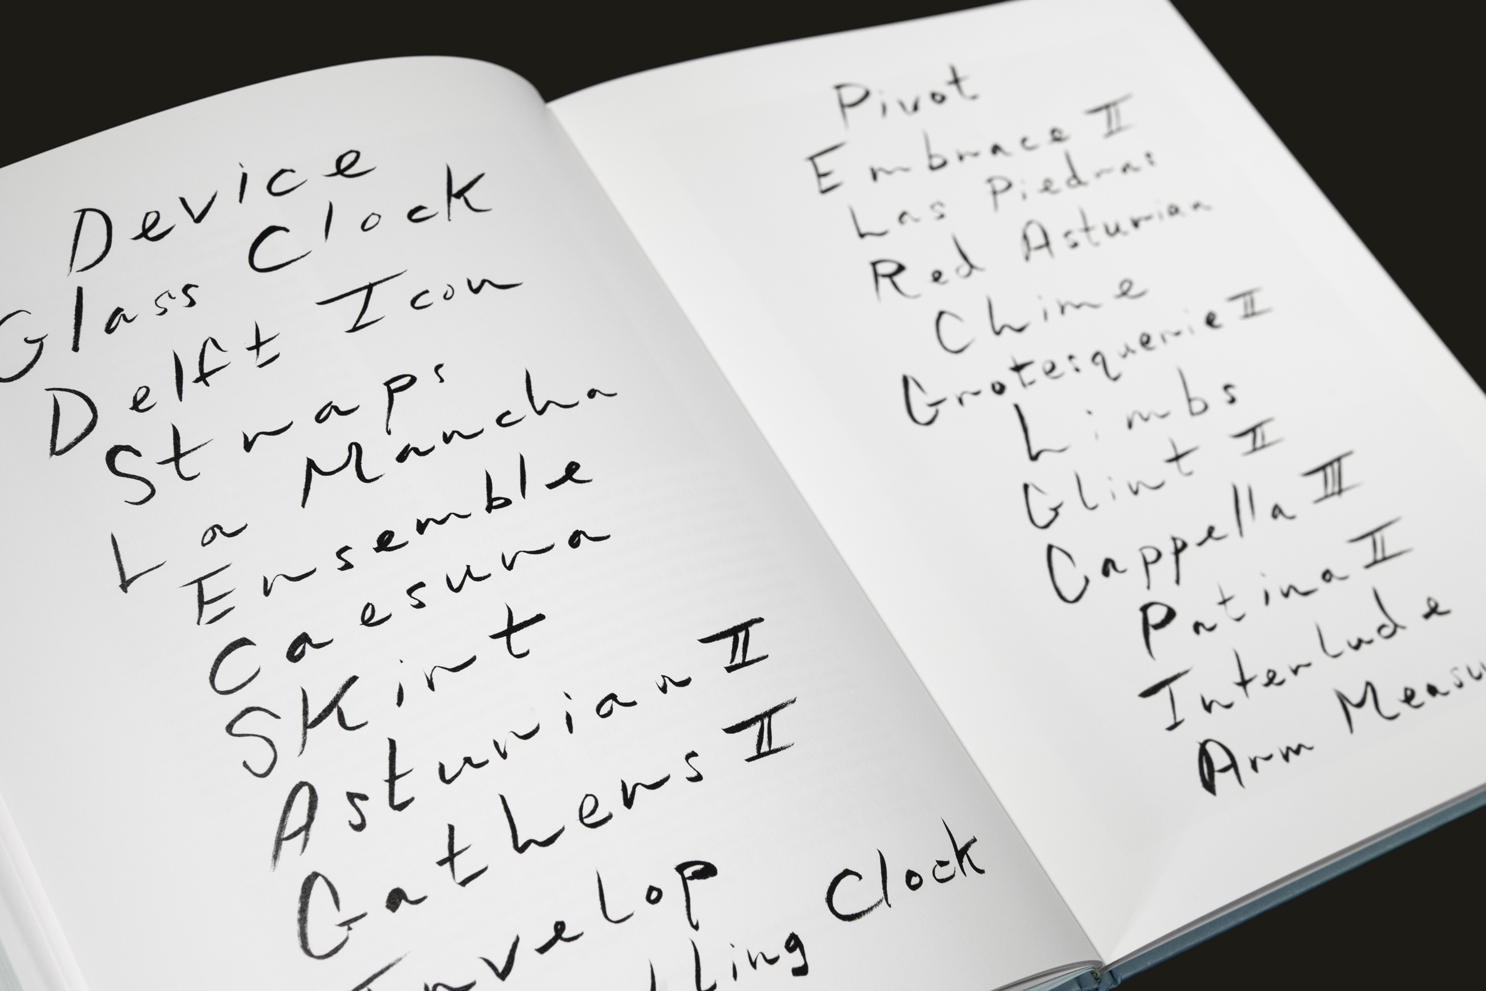 Device
Glass Clock
Delft Icon
Straps
La Mancha
Ensemble
Caesura
Skirt
Asturian II
Gathers II
Envelop
Clock
Pivot
Embrace II
Las Piedras
Red Asturian
Chime
Grotesquerie II
Limbs
Glint II
Cappella III
Patina II
Interlude
Arm